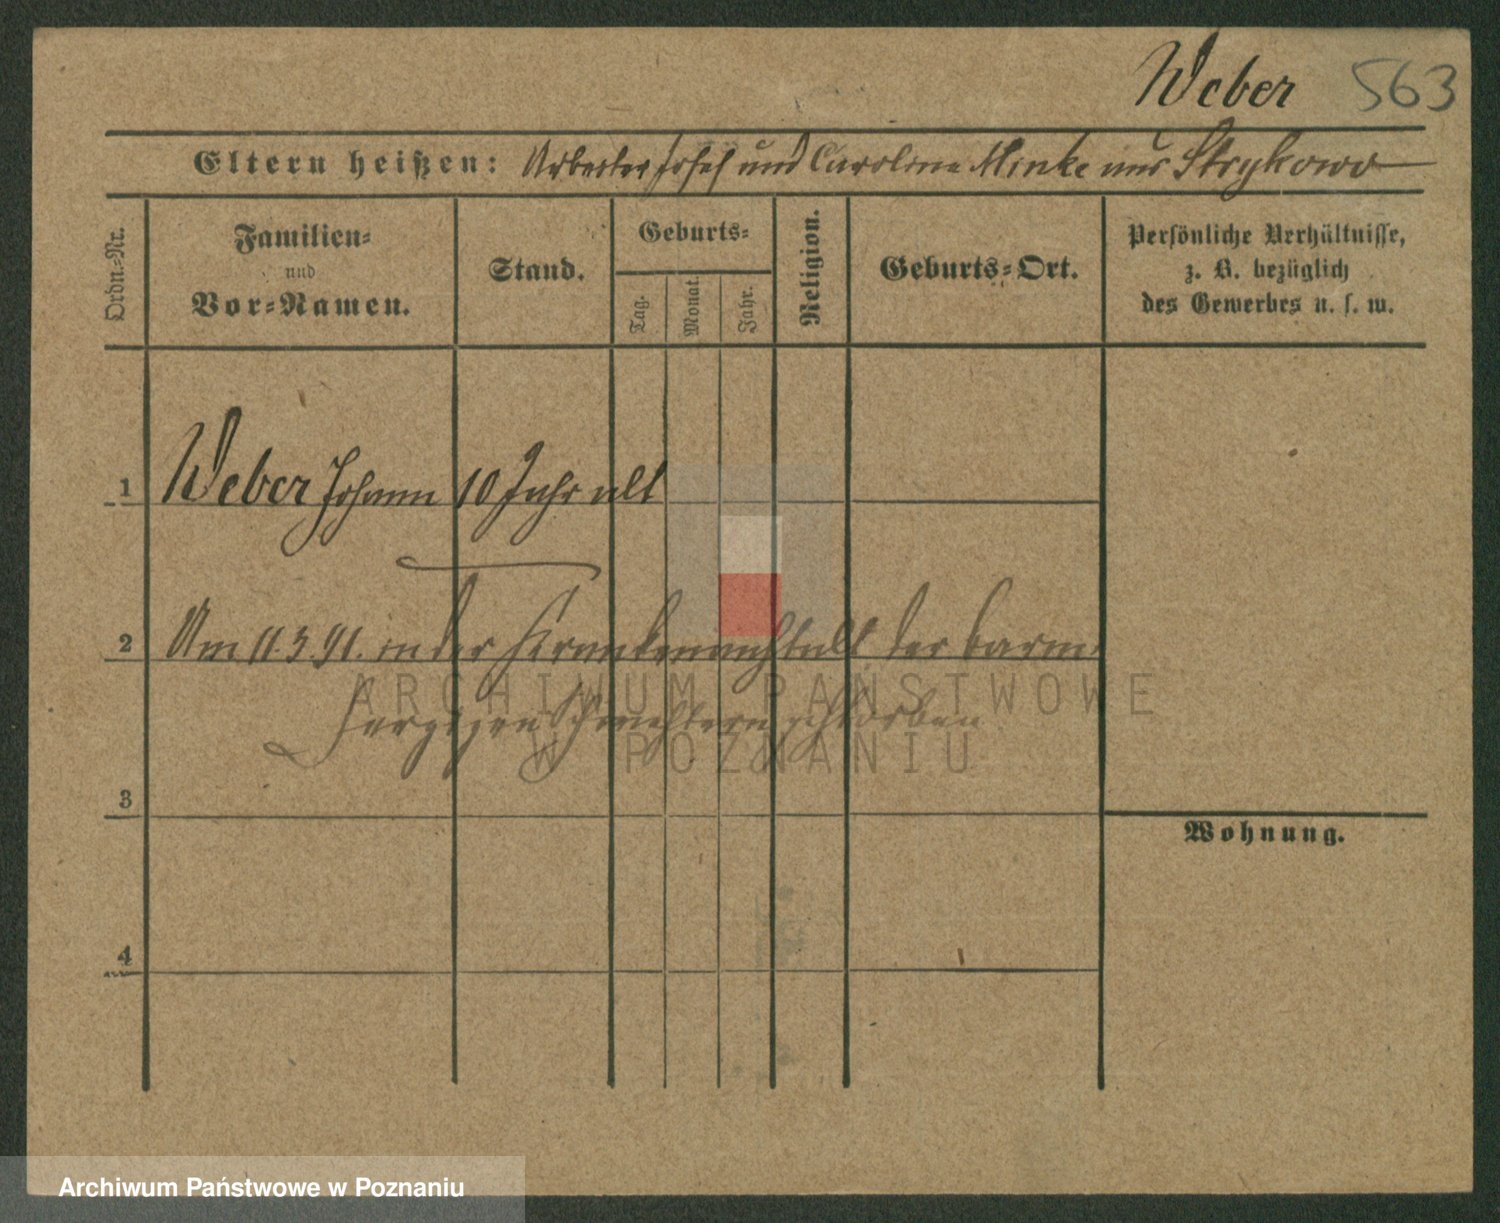 Weber 563
Eltern heißen: Arbeiter Josef und Caroline Minke aus Strykowo
Ordn.-Nr.
Familien-
und
Vor-Namen.
Stand.
Geburts-
Tag.
Monat.
Jahr.
Religion.
Geburts-Ort.
Persönliche Verhältnisse,
z. B. bezüglich
des Gewerbes u. s. w.
1 Weber Johann 10 Jahr alt
2 Am 11.3.91. in der Krankenanstalt der barm-
herzigen Schwestern gestorben
ARCHIWUM PAŃSTWOWE
W POZNANIU
3
Wohnung.
4
Archiwum Państwowe w Poznaniu